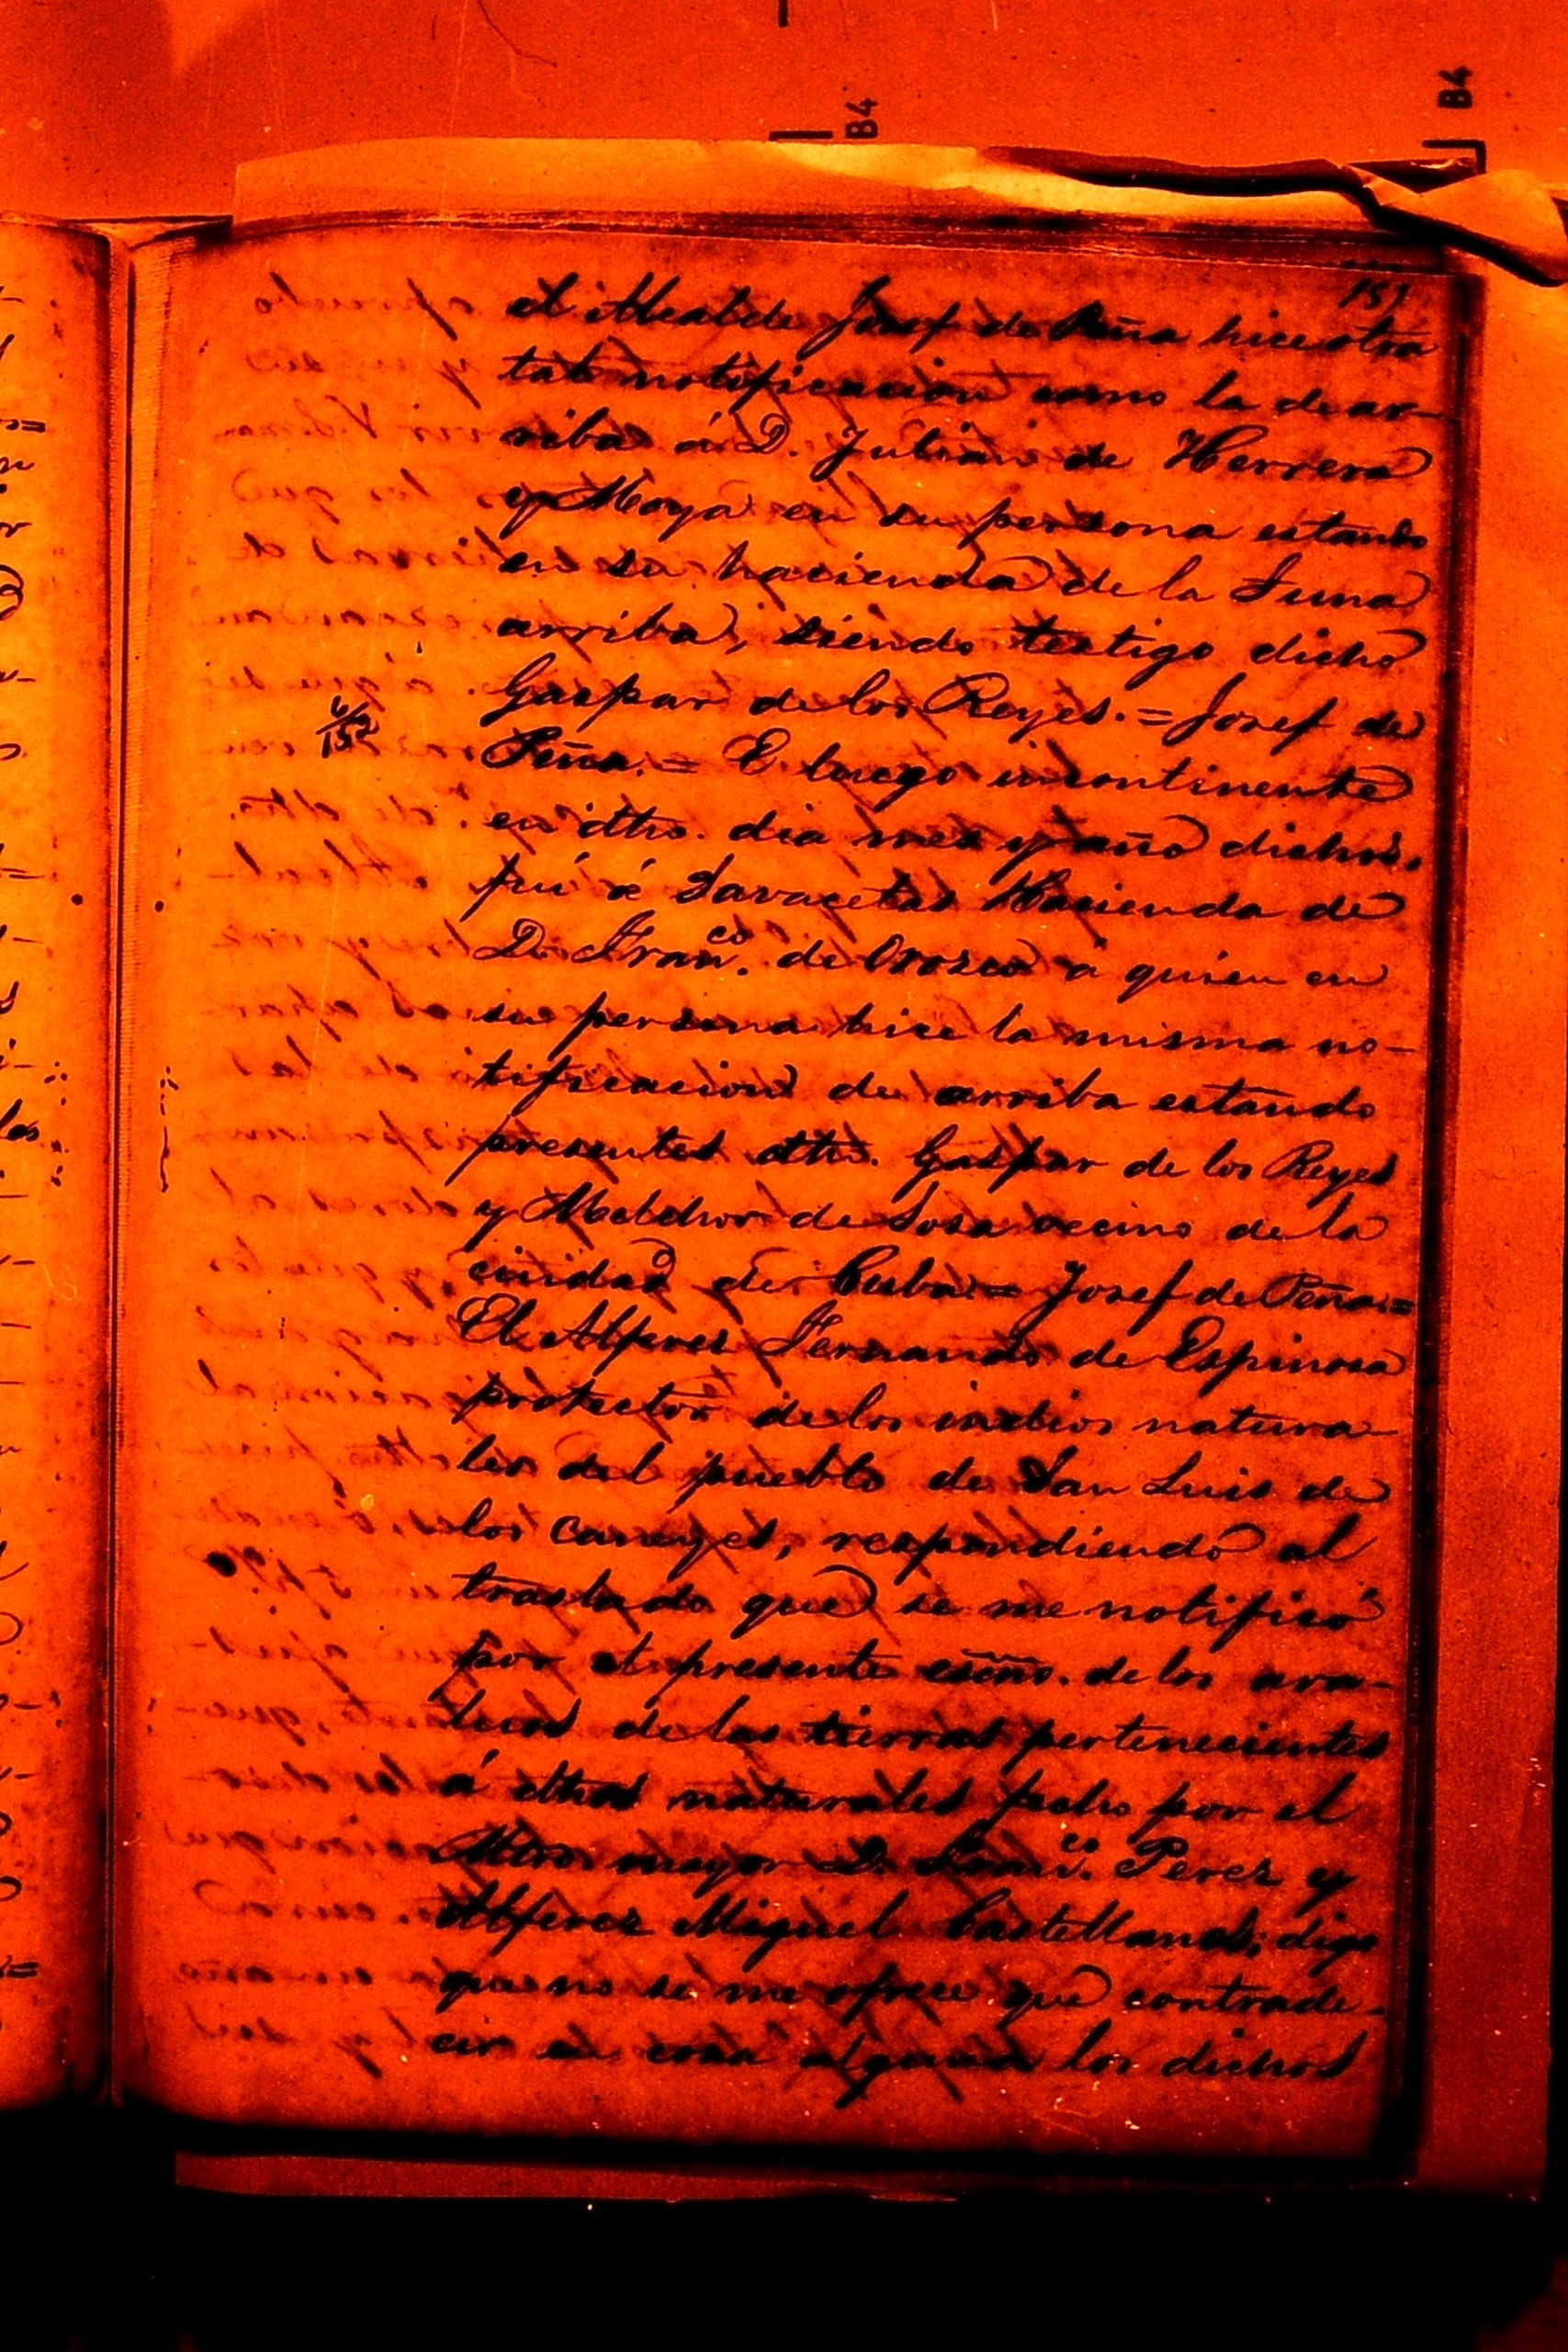 B4
B4
el Alcalde Josef de Peña hice otra
tal notificacion como la de ar-
riba á D. Julian de Herrera
y Moya en su persona estando
en su hacienda de la Tuna
arriba, siendo testigo dicho
Gaspar de los Reyes. = Josef de
Peña. = E luego incontinente
en dho. dia mes y año dichos,
fuí á Savacetas Hacienda de
D. Franco. de Orozco á quien en
su persona hice la misma no-
tificacion de arriba estando
presentes dho. Gaspar de los Reyes
y Melchor de Sosa vecino de la
ciudad de Cuba = Josef de Peña =
El Alferez Fernando de Espinosa
protector de los indios natura-
les del pueblo de San Luis de
los caneyes, respondiendo al
traslado que se me notificó
por el presente esōno. de los ava-
luos de las tierras pertenecientes
á dhos naturales fecho por el
mayor D. Perez y
Alferez Miguel Castellanos; digo
que no se me ofrece que contrade-
cir en cosa alguna los dichos